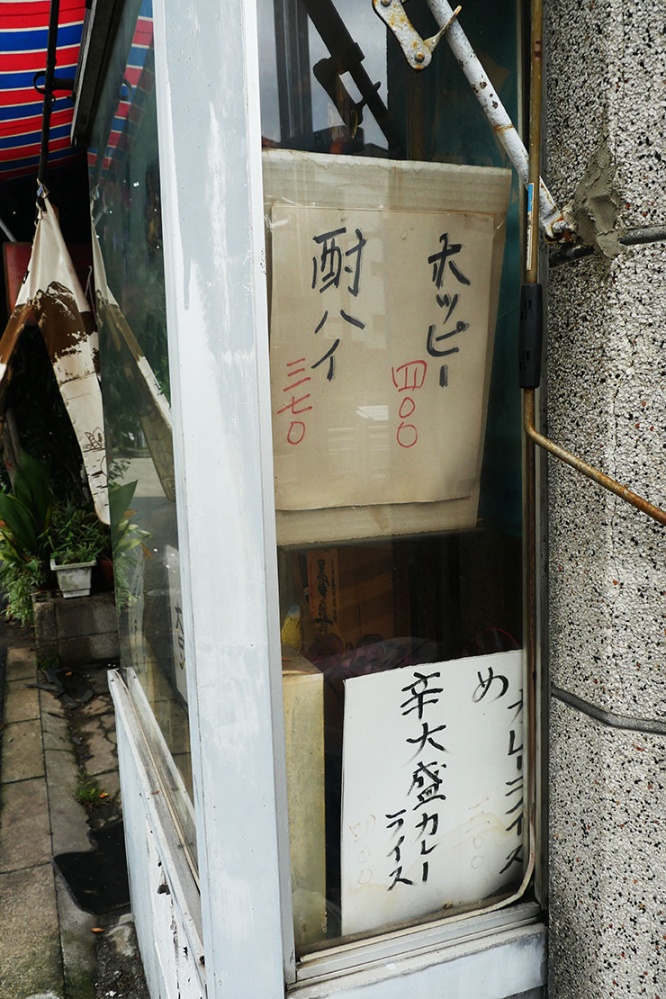 ホッピー
四〇〇
酎ハイ
三七〇
カレーライス
め
辛大盛カレー
ライス
四〇〇